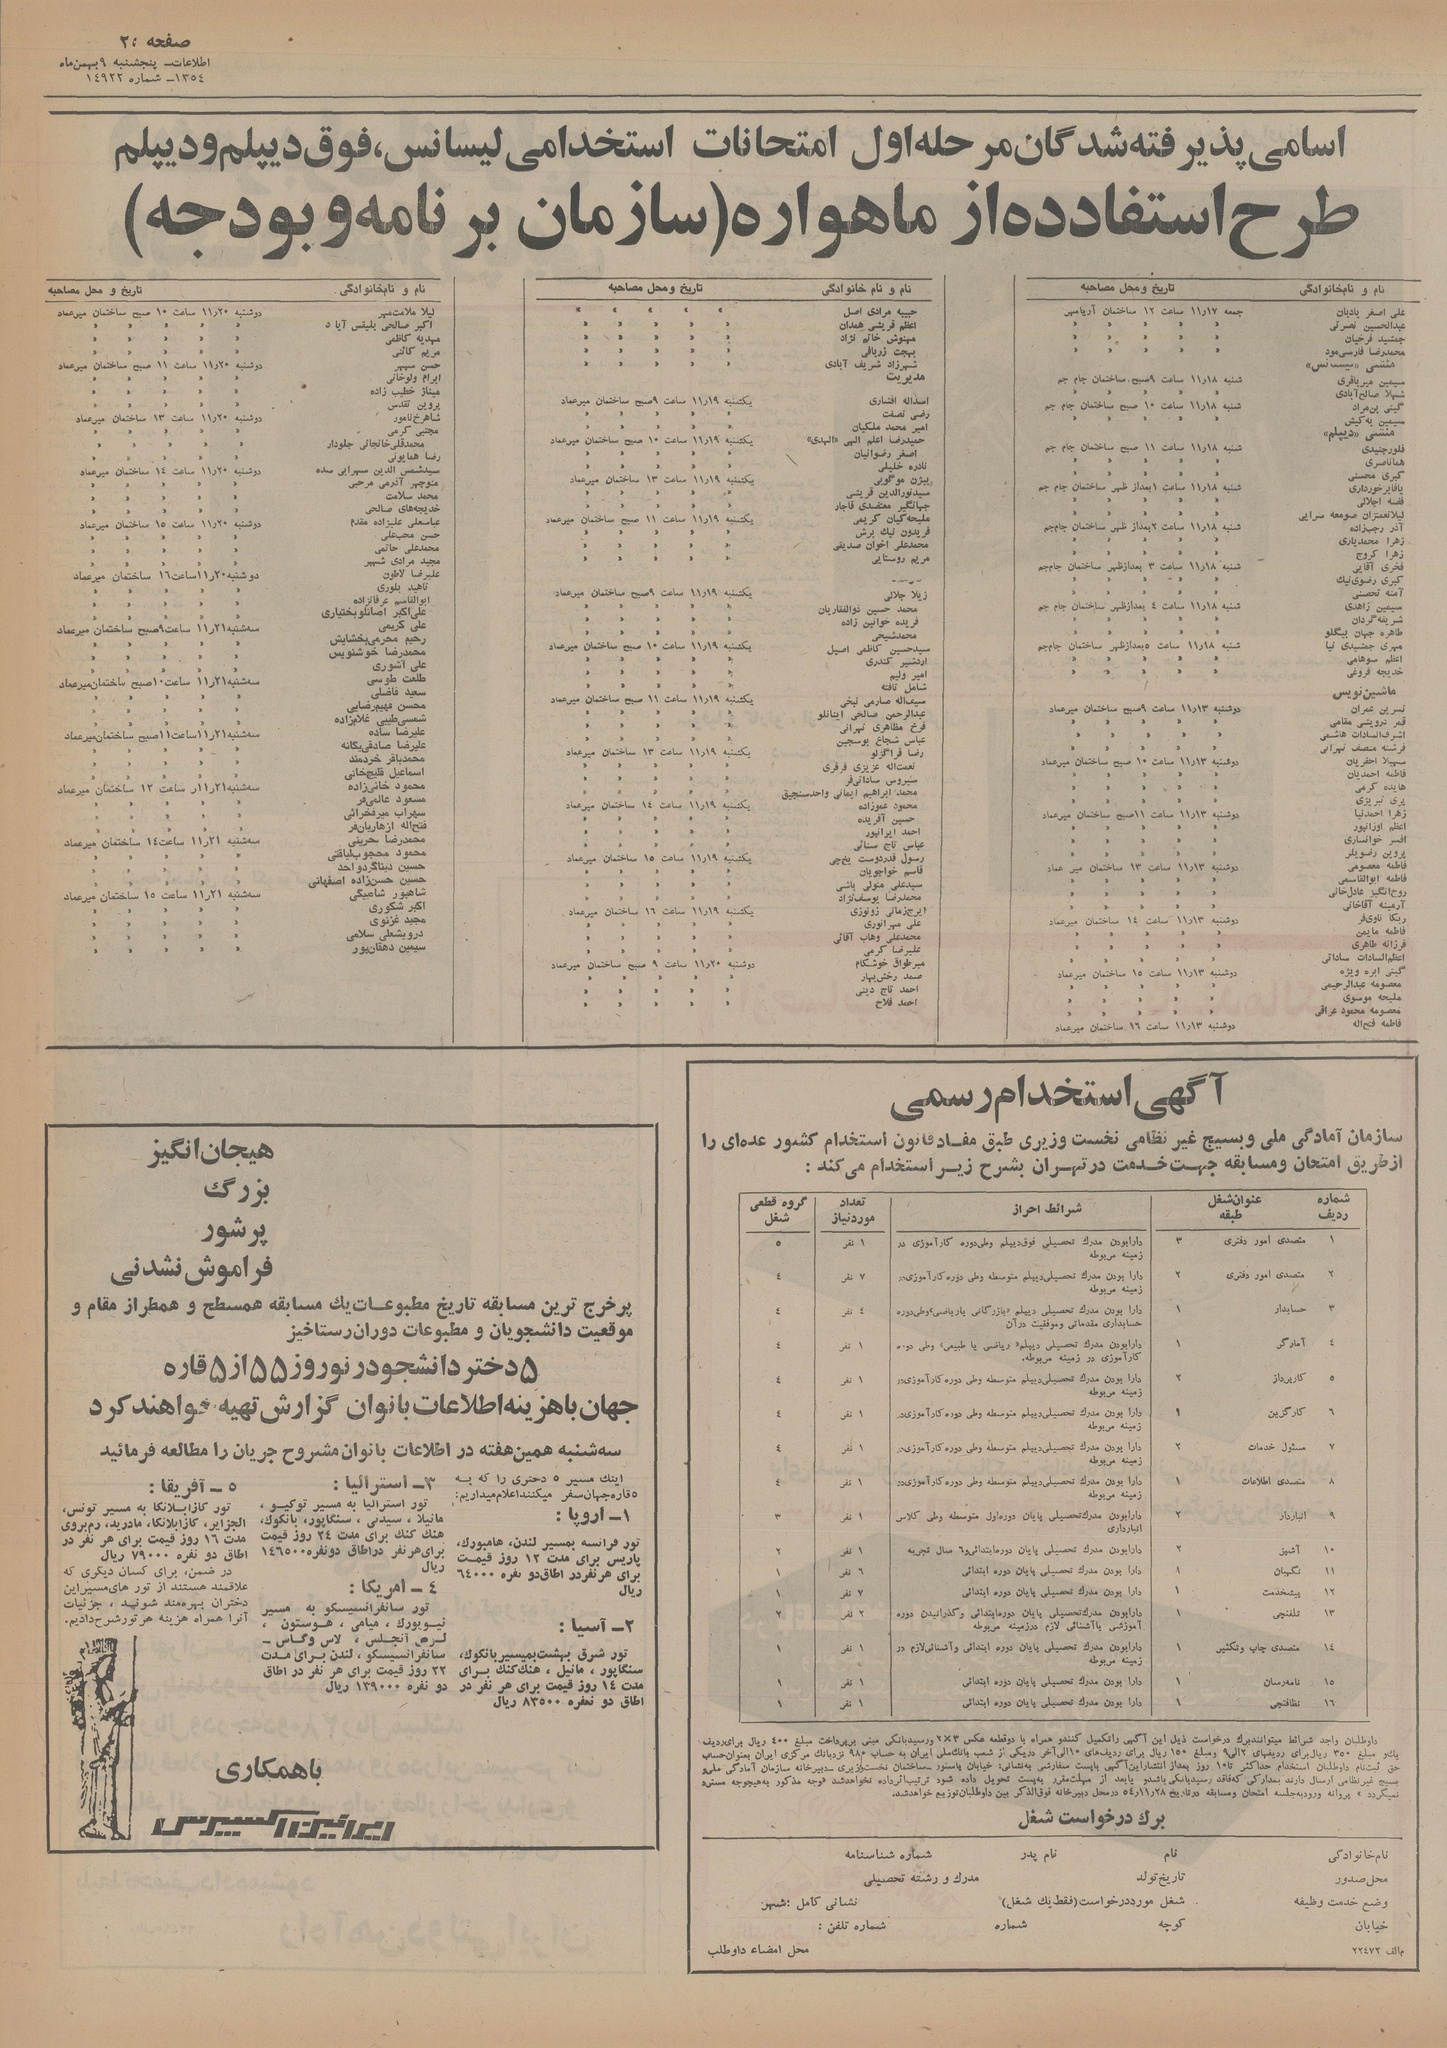 صفحه ۲۰
اطلاعات ـ پنجشنبه ۹ بهمن‌ماه
۱۳۵٤ـ شماره ۱٤۹۲۲
اسامی پذیرفته‌شدگان مرحله اول امتحانات استخدامی لیسانس، فوق دیپلم و دیپلم
طرح استفاده از ماهواره (سازمان برنامه و بودجه)
نام و نام‌خانوادگی تاریخ و محل مصاحبه
علی اصغر یادیان جمعه ۱۱ر۱۷ ساعت ۱۲ ساختمان آریامهر
عبدالحسین نصرتی
جمشید فرخیان
محمدرضا فارسی‌مود
سیمین میرباقری شنبه ۱۱ر۱۸ ساعت ۹صبح ساختمان جام جم
شهلا صالح‌آبادی
شنبه ۱۱ر۱۸ ساعت ۱۰ صبح ساختمان جام جم
منشی «دیپلم»
شنبه ۱۱ر۱۸ ساعت ۱۱ صبح ساختمان جام جم
هما ناصری
کبری محسنی
آذر رجب‌زاده شنبه ۱۱ر۱۸ ساعت ۲بعداز ظهر ساختمان جام‌جم
زهرا محمدیاری
زهرا کروج
فخری آقایی شنبه ۱۱ر۱۸ ساعت ۳ بعدازظهر ساختمان جام‌جم
کبری رضوی‌نیك
آمنه تحصنی
سیمین زاهدی شنبه ۱۱ر۱۸ ساعت ٤ بعدازظهر ساختمان جام جم
شریفه گردان
طاهره جهان بیگلو
مهری جمشیدی نیا شنبه ۱۱ر۱۸ ساعت ۵بعدازظهر ساختمان جام‌جم
اعظم سوهامی
خدیجه فروغی
ماشین‌نویس
نسرین عمران دوشنبه ۱۱ر۱۳ ساعت ۹صبح ساختمان میرعماد
قمر درویشی مقامی
اشرف‌السادات هاشمی
فرشته منصف تهرانی
سهیلا احقریان دوشنبه ۱۱ر۱۳ ساعت ۱۰ صبح ساختمان میرعماد
فاطمه احمدیان
هایده کرمی
پری تبریزی
زهرا احمدنیا دوشنبه ۱۱ر۱۳ ساعت ۱۱صبح ساختمان میرعماد
اعظم اوزانپور
افسر خوانساری
پروین رضوپلر
فاطمه معصومی دوشنبه ۱۱ر۱۳ ساعت ۱۳ ساختمان میر عماد
فاطمه ابوالقاسمی
روح‌انگیز عادل‌خانی
آرمینه آقاخانی
ربکا ناوی‌فر دوشنبه ۱۱ر۱۳ ساعت ۱٤ ساختمان میرعماد
فاطمه مایمن
فرزانه طاهری
اعظم‌السادات ساداتی
گیتی ابره ویژه دوشنبه ۱۱ر۱۳ ساعت ۱۵ ساختمان میرعماد
معصومه عبدالرحیمی
ملیحه موسوی
معصومه محمود عراقی
فاطمه فتح‌اله دوشنبه ۱۱ر۱۳ ساعت ۱٦ ساختمان میرعماد
نام و نام خانوادگی تاریخ و محل مصاحبه
حبیبه مرادی اصل
اعظم قریشی همدان
مهنوش خاتم نژاد
بهجت زریافی
شهرزاد شریف آبادی
مدیریت
اسداله افشاری یکشنبه ۱۱ر۱۹ ساعت ۹صبح ساختمان میرعماد
رضی نصفت
امیر محمد ملکیان
حمیدرضا اعلم الهی «الهدی» یکشنبه ۱۱ر۱۹ ساعت ۱۰ صبح ساختمان میرعماد
اصغر رضوانیان
نادره خلیلی
بیژن موگویی یکشنبه ۱۱ر۱۹ ساعت ۱۳ ساختمان میرعماد
سیدنورالدین قریشی
جهانگیر معتضدی قاجار
ملیحه کیان کریمی یکشنبه ۱۱ر۱۹ ساعت ۱۱ صبح ساختمان میرعماد
فریدون نیك برش
محمدعلی اخوان صدیقی
مریم روستایی
ژیلا جلالی یکشنبه ۱۱ر۱۹ ساعت ۹صبح ساختمان میرعماد
محمد حسین ذوالفقاریان
فریده خوانین زاده
محمدشیحی
سیدحسین کاظمی اصیل یکشنبه ۱۱ر۱۹ ساعت ۱۰ صبح ساختمان میرعماد
اردشیر کندری
امیر ولیم
شامل تافته
سیف‌اله صارمی نیخی یکشنبه ۱۱ر۱۹ ساعت ۱۱ صبح ساختمان میرعماد
عبدالرحمن صالحی اینانلو
فرخ مظاهری تهرانی
عباس شجاع یوسجین
رضا قراگزلو یکشنبه ۱۱ر۱۹ ساعت ۱۳ ساختمان میرعماد
نعمت‌اله عزیزی فرقری
سیروس ساداتی‌فر
محمد ابراهیم ایمانی واحدسنجیق
محمود عموزاده یکشنبه ۱۱ر۱۹ ساعت ۱٤ ساختمان میرعماد
حسین آفریده
احمد ایرانپور
عباس تاج سنائی
رسول قدردوست یخ‌چی یکشنبه ۱۱ر۱۹ ساعت ۱۵ ساختمان میرعماد
قاسم خواجویان
سیدعلی متولی باشی
محمدرضا یوسف‌نژاد
ایرج‌زمانی زنوزی یکشنبه ۱۱ر۱۹ ساعت ۱٦ ساختمان میرعماد
علی مهرانوری
محمدعلی وهاب آقائی
علیرضا کرمی
میرطواق خوشکام دوشنبه ۱۱ر۲۰ ساعت ۹ صبح ساختمان میرعماد
صمد رخش‌بهار
احمد تاج دینی
احمد فلاح
نام و نام‌خانوادگی تاریخ و محل مصاحبه
لیلا ملامت‌مهر دوشنبه ۱۱ر۲۰ ساعت ۱۰ صبح ساختمان میرعماد
اکبر صالحی بلیقس آیا د
مهدیه کاظمی
مریم کاتبی
حسن سپهر دوشنبه ۱۱ر۲۰ ساعت ۱۱ صبح ساختمان میرعماد
ابرام ولوخانی
میناژ خطیب زاده
پروین تقدس
شاهرخ نامور دوشنبه ۱۱ر۲۰ ساعت ۱۳ ساختمان میرعماد
مجتبی کرمی
محمدقلی خانجانی جلودار
رضا همایونی
سیدشمس الدین سهرابی سده دوشنبه ۱۱ر۲۰ ساعت ۱٤ ساختمان میرعماد
منوچهر آذرمی مرحبی
محمد سلامت
خدیجه‌های صالحی
عباسعلی علیزاده مقدم دوشنبه ۱۱ر۲۰ ساعت ۱۵ ساختمان میرعماد
حسن محب‌علی
محمدعلی حاتمی
مجید مرادی شهپر
علیرضا لاطون دوشنبه ۱۱ر۲۰ ساعت ۱٦ ساختمان میرعماد
ناهید بلوری
ابوالقاسم عرفانزاده
علی‌اکبر اصانلوبختیاری
علی کریمی سه‌شنبه ۱۱ر۲۱ ساعت ۹صبح ساختمان میرعماد
رحیم محرمی‌بخشایش
محمدرضا خوشنویس
علی آشوری
طلعت طوسی سه‌شنبه ۱۱ر۲۱ ساعت ۱۰صبح ساختمان میرعماد
سعید فاضلی
محسن فهیم‌رضایی
شمسی طیبی غلامزاده
علیرضا ساده سه‌شنبه ۱۱ر۲۱ ساعت ۱۱صبح ساختمان میرعماد
علیرضا صادقی‌یگانه
محمدباقر خردمند
اسماعیل فلیج‌خانی
محمود خانی‌زاده سه‌شنبه ۱۱ر۲۱ ساعت ۱۲ ساختمان میرعماد
مسعود عالمی‌فر
سهراب میرفخرائی
فتح‌اله ازهاریان‌فر
محمدرضا حرینی سه‌شنبه ۱۱ر۲۱ ساعت ۱٤ ساختمان میرعماد
محمود محجوب‌لیاقتی
حسین دیناگردواحد
حسین حسن‌زاده اصفهانی
شاهپور شاه‌بیگی سه‌شنبه ۱۱ر۲۱ ساعت ۱۵ ساختمان میرعماد
اکبر شکوری
مجید غزنوی
درویشعلی سلامی
سیمین دهقان‌پور
آگهی استخدام رسمی
سازمان آمادگی ملی و بسیج غیر نظامی نخست وزیری طبق مفاد قانون استخدام کشور عده‌ای را
از طریق امتحان و مسابقه جهت خدمت در تهران بشرح زیر استخدام می‌کند :
شماره ردیف عنوان شغل طبقه شرائط احراز تعداد مورد نیاز گروه قطعی شغل
۱ متصدی امور دفتری ۳ دارابودن مدرك تحصیلی فوق‌دیپلم وطی‌دوره کارآموزی در ۱ نفر ۵
زمینه مربوطه
۲ متصدی امور دفتری ۲ دارا بودن مدرك تحصیلی‌دیپلم متوسطه وطی دوره کارآموزی‌در ۷ نفر ٤
زمینه مربوطه
۳ حسابدار ۱ دارا بودن مدرك تحصیلی دیپلم «بازرگانی یاریاضی»وطی‌دوره ٤ نفر ٤
حسابداری مقدماتی وموفقیت درآن
٤ آمارگر ۱ دارابودن مدرك تحصیلی‌دیپلم« ریاضی یا طبیعی» وطی دوره ۱ نفر ٤
کارآموزی در زمینه مربوطه.
۵ کارپرداز ۲ دارا بودن مدرك تحصیلی‌دیپلم متوسطه وطی دوره کارآموزی‌در ۱ نفر ٤
زمینه مربوطه
٦ کارگزین ۱ دارا بودن مدرك تحصیلی‌دیپلم متوسطه وطی دوره کارآموزی‌در ۱ نفر ٤
زمینه مربوطه
۷ مسئول خدمات ۲ دارا بودن مدرك تحصیلی‌دیپلم متوسطه وطی دوره کارآموزی‌در ۱ نفر ٤
زمینه مربوطه
۸ متصدی اطلاعات ۱ دارا بودن مدرك تحصیلی‌دیپلم متوسطه وطی دوره کارآموزی‌در ۱ نفر ٤
زمینه مربوطه
۹ انباردار ۲ دارابودن مدرك‌تحصیلی پایان دوره‌اول متوسطه وطی کلاس ۱ نفر ۳
انبارداری
۱۰ آشپز ۲ دارابودن مدرك تحصیلی پایان دوره‌ابتدائی‌و٦ سال تجربه ۱ نفر ۲
۱۱ نگهبان ۸ دارا بودن مدرك تحصیلی پایان دوره ابتدائی ٦ نفر ۱
۱۲ پیشخدمت ۱ دارا بودن مدرك تحصیلی پایان دوره ابتدائی ۷ نفر ۱
۱۳ تلفنچی ۱ دارابودن مدرك‌تحصیلی پایان دوره‌ابتدائی وگذرانیدن دوره ۲ نفر ۲
آموزشی یاآشنائی لازم درزمینه مربوطه
۱٤ متصدی چاپ وتکثیر ۱ دارابودن مدرك‌تحصیلی پایان دوره ابتدائی وآشنائی‌لازم در ۱ نفر ۱
زمینه مربوطه
۱۵ نامه‌رسان ۱ دارا بودن مدرك تحصیلی پایان دوره ابتدائی ۱ نفر ۱
۱٦ نظافتچی ۱ دارا بودن مدرك تحصیلی پایان دوره ابتدائی ۱ نفر ۱
داوطلبان واجد شرائط میتوانندبرك درخواست ذیل این آگهی راتکمیل کنندو همراه با دوقطعه عکس ۳×۲ ورسیدبانکی مبنی برپرداخت مبلغ ٤۰۰ ریال برای‌ردیف
یك‌و مبلغ ۳۵۰ ریال‌برای ردیفهای ۲الی۹ ومبلغ ۱۵۰ ریال برای ردیف‌های ۱۰الی‌آخر دریکی از شعب بانك‌ملی ایران به حساب ۹۸۰ نزدبانك مرکزی ایران بعنوان‌حساب
حق ثبت‌نام داوطلبان استخدام حداکثر تا۱۰ روز بعداز انتشاراین‌آگهی باپست سفارشی به‌نشانی: خیابان پاستور ـ ساختمان نخست‌وزیری ـ دبیرخانه سازمان آمادگی ملی‌و
بسیج غیرنظامی ارسال دارند بمدارکی که‌فاقد رسیدبانکی‌باشدو یابعد از مهلت‌مقرر به‌پست تحویل داده شود ترتیب‌اثرداده نخواهدشد
پروانه ورودبه‌جلسه امتحان ومسابقه درتاریخ ۵٤ر۱۱ر۲۸ درمحل دبیرخانه فوق‌الذکر بین داوطلبان‌توزیع خواهدشد.
برك درخواست شغل
نام‌خانوادگی نام نام پدر شماره شناسنامه
محل‌صدور تاریخ‌تولد مدرك و رشته تحصیلی
وضع خدمت وظیفه شغل مورددرخواست(فقط‌یك شغل) نشانی کامل :شهر
خیابان کوچه شماره شماره تلفن :
م‌الف ۲۲٤۷۲ محل امضاء داوطلب
هیجان‌انگیز
بزرگ
پرشور
فراموش نشدنی
پرخرج ترین مسابقه تاریخ مطبوعات یك مسابقه همسطح و همطراز مقام و
موقعیت دانشجویان و مطبوعات دوران رستاخیز
۵دختر دانشجو در نوروز ۵۵ از ۵ قاره
جهان باهزینه اطلاعات بانوان گزارش تهیه خواهند کرد
سه‌شنبه همین هفته در اطلاعات بانوان مشروح جریان را مطالعه فرمائید
اینك مسیر ۵ دختری را که به
۵قاره‌جهان‌سفر میکننداعلام‌میداریم:
۱ـ اروپا :
تور فرانسه بمسیر لندن، هامبورك،
پاریس برای مدت ۱۲ روز قیمت
برای هرنفردر اطاق‌دو نفره ٦٤۰۰۰
ریال
۲ـ آسیا :
تور شرق بهشت‌بمسیربانکوك،
سنگاپور ، مانیل ، هنك‌کنك برای
مدت ۱٤ روز قیمت برای هر نفر در
اطاق دو نفره ۸۳۵۰۰ ریال
۳ـ استرالیا :
تور استرالیا به مسیر توکیو ،
مانیلا ، سیدنی ، سنگاپور، بانکوك،
هنك کنك برای مدت ۲٤ روز قیمت
برای‌هرنفر دراطاق دونفره۱٤٦۵۰۰
ریال
٤ ـ امریکا :
تور سانفرانسیسکو به مسیر
نیویورك ، میامی ، هوستون ،
لوس آنجلس ، لاس وگاس ـ
سانفرانسیسکو ، لندن برای مدت
۲۲ روز قیمت برای هر نفر در اطاق
دو نفره ۱۳۹۰۰۰ ریال
۵ ـ آفریقا :
تور کازابلانکا به مسیر تونس،
الجزایر، کازابلانکا، مادرید، رم‌بروی
مدت ۱٦ روز قیمت برای هر نفر در
اطاق دو نفره ۷۹۰۰۰ ریال
در ضمن، برای کسان دیگری که
علاقمند هستند از تور های‌مسیراین
دختران بهره‌مند شوند ، جزئیات
آنرا همراه هزینه هرتورشرح‌دادیم.
باهمکاری
ایرانین اکسپرس